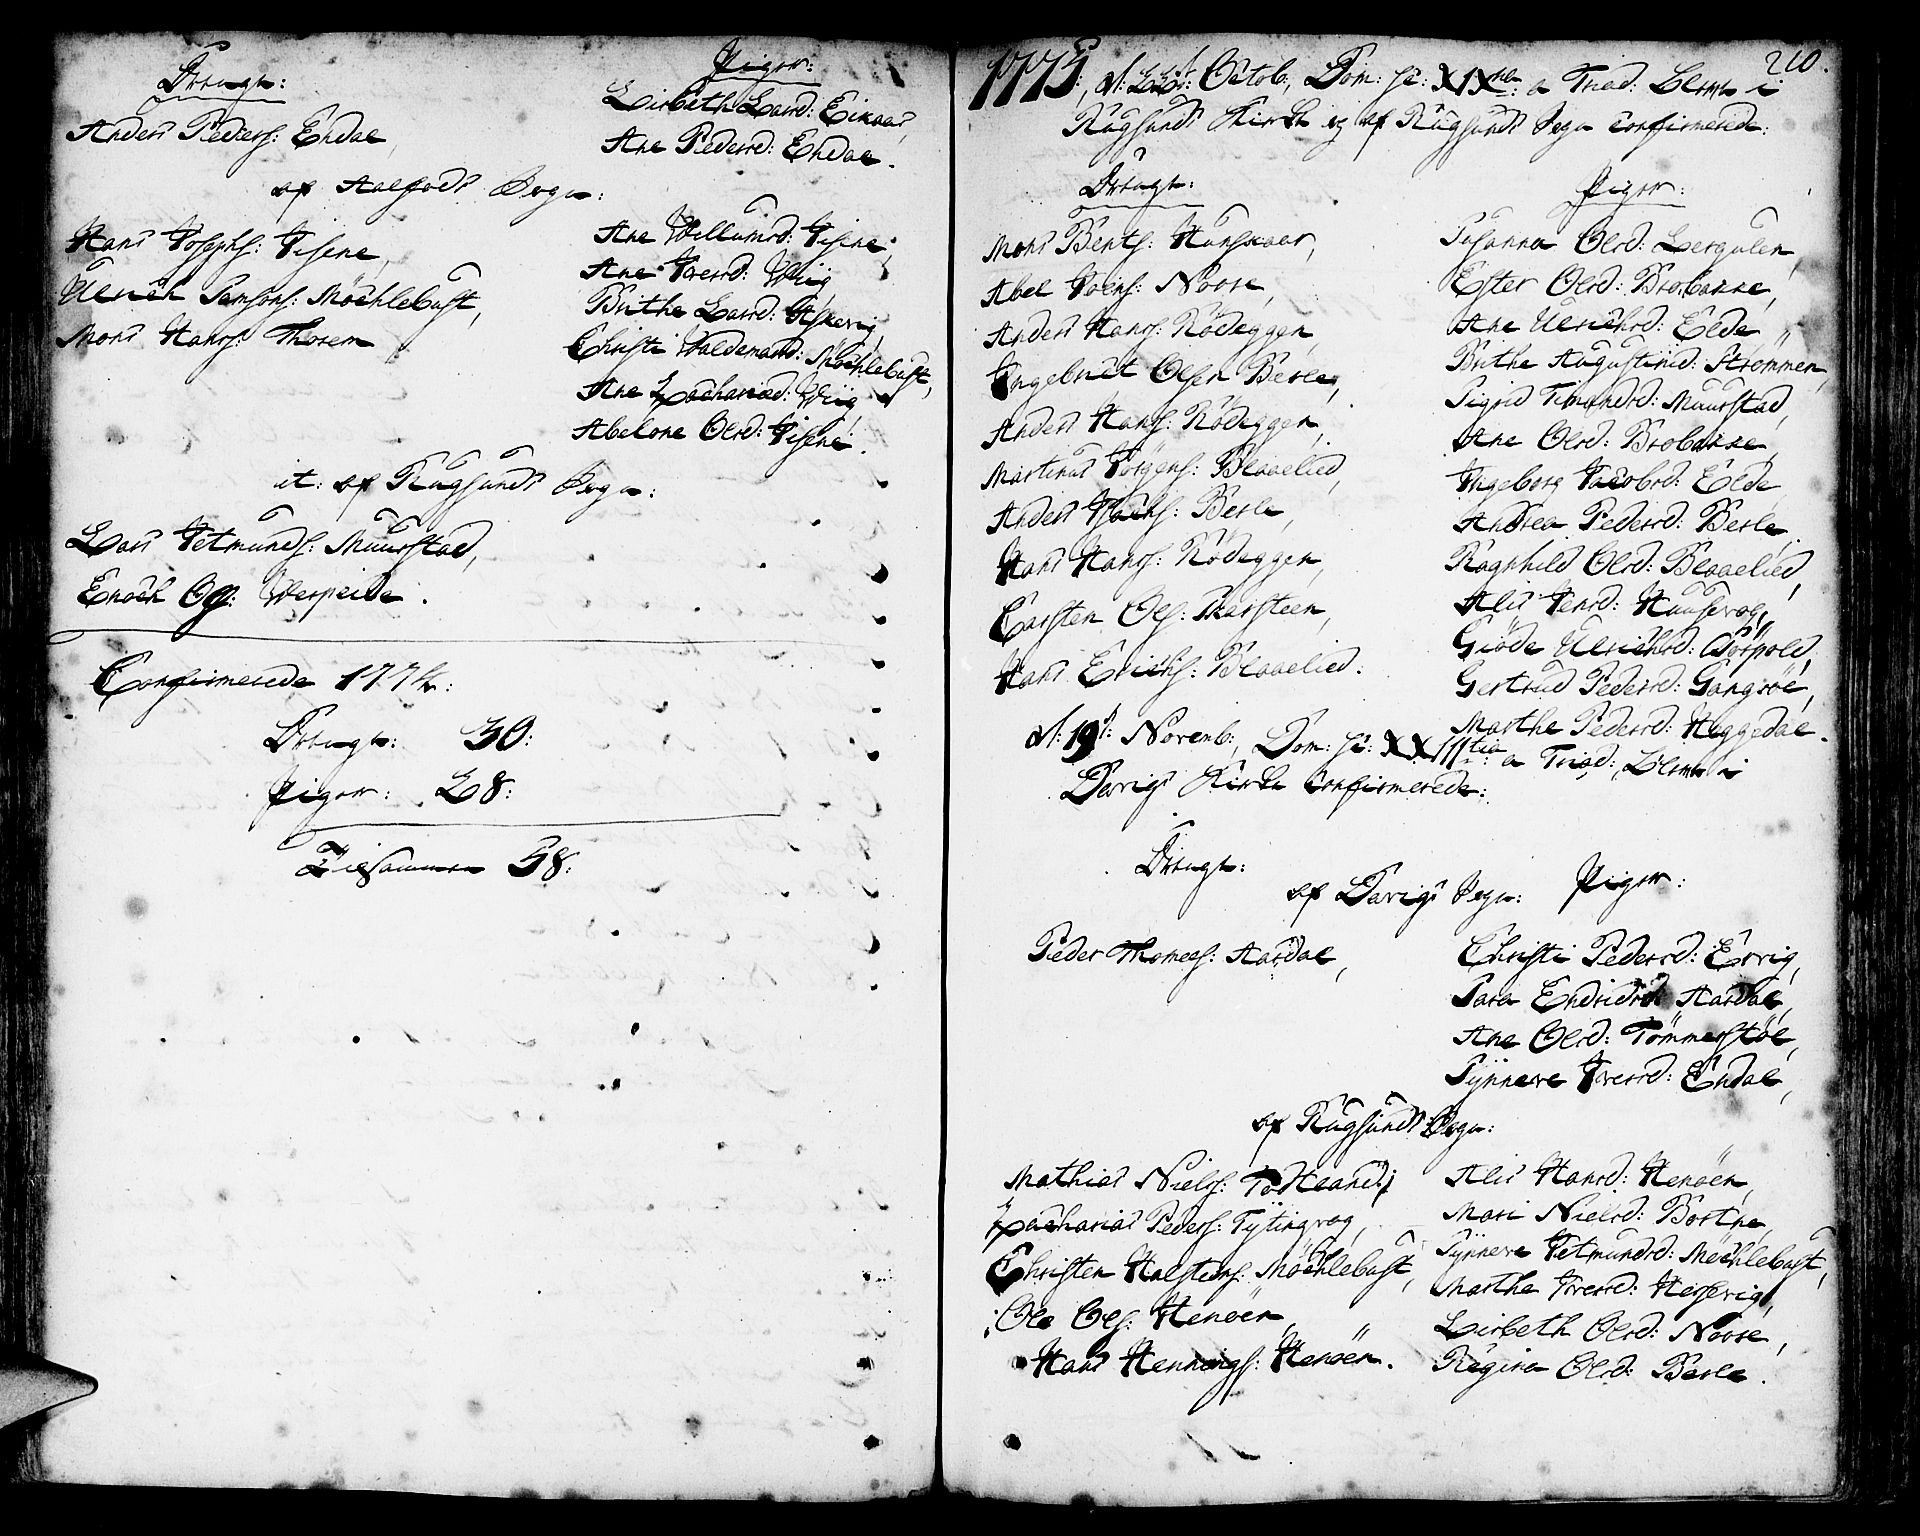 Drenge:
Anders Peders: Endal,
Piger:
Lisbeth Larsd: Eikaas,
Ane Pedersd: Endal.
af Aalfods Sogn:
Hans Josephs: Isene,
Ulrich Samsons: Möchlebust,
Mons Hans: Thorem
Ane Willumsd: Isene,
Ane Iversd: Wiig
Brithe Larsd: Askevig,
Christi Waldemarsd: Möchlebust,
Ane Zachariæd: Wiig,
Abelone Olsd: Isene.
it: af Rugsunds Sogn:
Lars Jetmunds: Muurstad,
Enoch Ols: Werpeide.
Confirmerede 1774:
Drenge: 30:
Piger: 28:
Tilsammen 58:
210.
1775, d: 22de Octob:, Dom: XIXna a Trind: blev i
Rugsunds Kirke og af Rugsunds Sogn confirmerede:
Drenge:
Mons Bents: Hunskaar,
Abel Joens: Noore,
Anders Hans: Rödeggen,
Ingebrict Olsen Berle,
Anders Hans: Rödeggen,
Martinus Jörgens: Blaaelied,
Anders Joens: Berle,
Hans Hans: Rödeggen,
Carsten Ols: Marsteen,
Hans Erichs: Blaaelied.
Piger:
Susanna Olsd: Lergulen,
Ester Olsd: Brobakke,
Ane Ulrichsd: Elde,
Brithe Augustinsd: Strömmen,
Sigrid Timandsd: Muurstad,
Ane Olsd: Brobakke,
Ingeborg Jacobsd: Elde,
Andrea Pedersd: Berle,
Ragnhild Olsd: Blaaelied,
Alis Jensd: Hausevog,
Giöde Ulrichsd: Börpold
Gertrud Pedersd: Gangsöe,
Marthe Pedersd: Heggedal.
d: 19d: Novemb:, Dom: XXIIItia a Trind: blev i
Davigs Kirke confirmerede:
Drenge:
af Davigs Sogn:
Piger:
Peder Thomess: Aardal,
Christi Pedersd: Ervig,
Sara Endridsd: Aardal,
Ane Olsd: Tömmerstöl,
Synneve Iversd: Endal,
af Rugsunds Sogn:
Mathias Niels:
Zacharias Peders: Tytingvog,
Christen Halsteens: Möchlebust,
Ole Ols: Henöen,
Hans Hennings: Henöen.
Alis Hansd: Henöen,
Mari Nielsd: Bortne,
Synneve Jetmundsd: Möchlebust,
Marthe Iversd: Hessevig,
Lisbeth Olsd: Noore,
Regina Olsd: Berle.